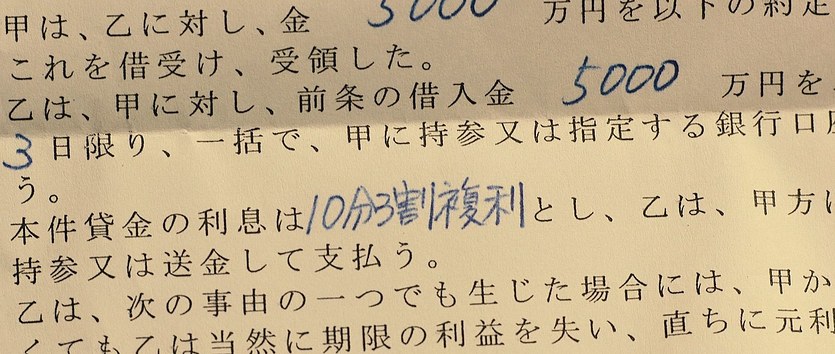 甲は、乙に対し、金 5000 万円を以下の約定
これを借受け、受領した。
乙は、甲に対し、前条の借入金 5000 万円を
3日限り、一括で、甲に持参又は指定する銀行口座
う。
本件貸金の利息は10分3割複利とし、乙は、甲方に
持参又は送金して支払う。
乙は、次の事由の一つでも生じた場合には、甲か
くても乙は当然に期限の利益を失い、直ちに元利